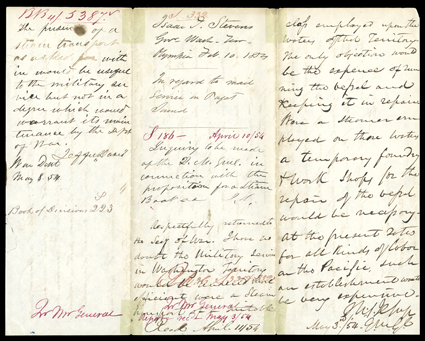 the presence of a
steam transport
as asked for with
in would be useful
to the military ser
vice but not in a
degree which would
warrant its main
tenance by the Dept
of War.
War Dept
May 8. 54
Book of Decisions 223
Qr Mr General
Isaac I. Stevens
Gov. Wash. Ter.
Olympia Feb. 10. 1854
In regard to mail
Service in Puget
Sound
S 186 - April 10/54
Inquiry to be made
of the Qr. Mr. Genl. in
connection with the
proposition for a Steam
Boat
Respectfully returned to
the Sec. of War. I have no
doubt the Military Service
in Washington Territory
would be
efficient were a Steam
Qr Mr General
May 3/54
Recd. April 14/54
employed upon the
waters of that Territory
The only objection would
be the expense of run
ning the vessel and
keeping it in repair
Were a Steamer em
ployed on those waters
a temporary foundry
& work shops for the
repair of the vessel
would be necessary
at the present rates
for all kinds of labor
on the Pacific, such
an establishment would
be very expensive.
May 3/54.